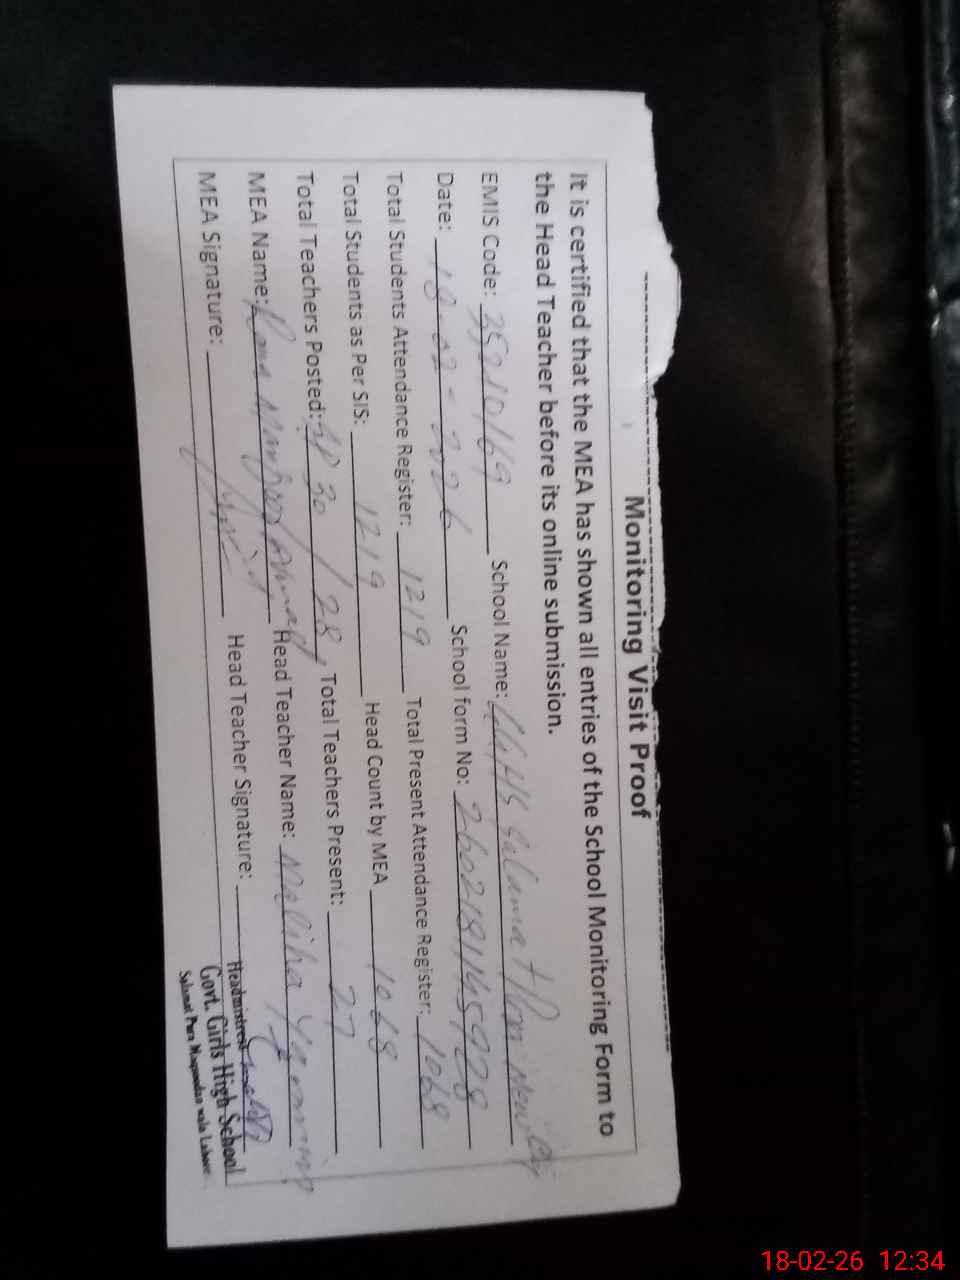 Monitoring Visit Proof
It is certified that the MEA has shown all entries of the School Monitoring Form to
the Head Teacher before its online submission.
EMIS Code: 35210169 School Name: GGHS Salamat Pura
Date: 18-02-2026 School form No:
Total Students Attendance Register: 1219 Total Present Attendance Register: 1068
Total Students as Per SIS: 1219 Head Count by MEA 1068
Total Teachers Posted: 30 / 28, Total Teachers Present: 27
MEA Name: Head Teacher Name: Maliha
MEA Signature: Head Teacher Signature:
Headmistress
Govt. Girls High School
Salamat Pura Lahore
18-02-26 12:34